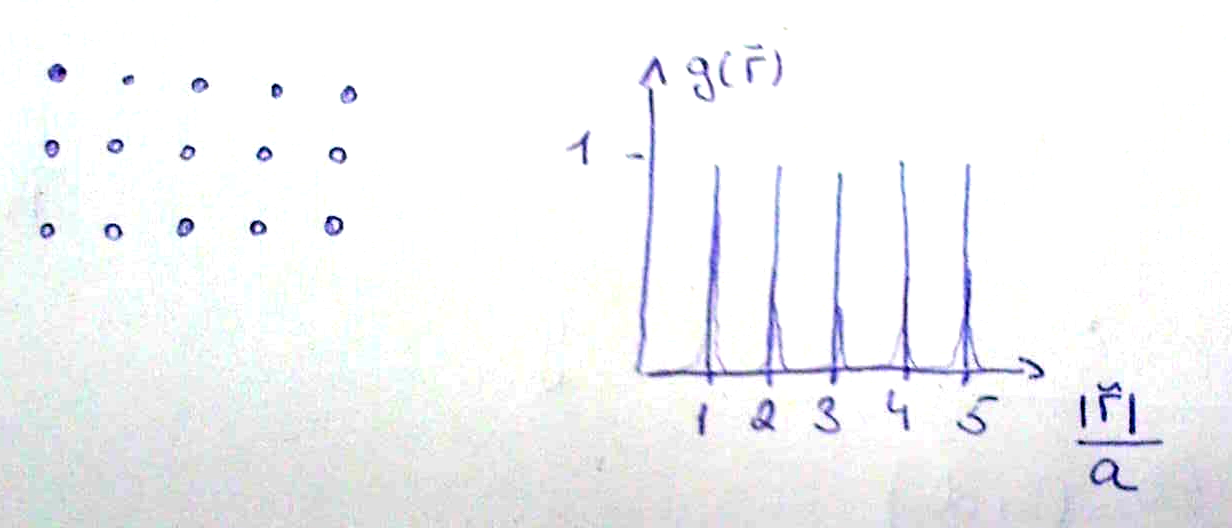 g(r⃗)
1
1 2 3 4 5
|r⃗|
a